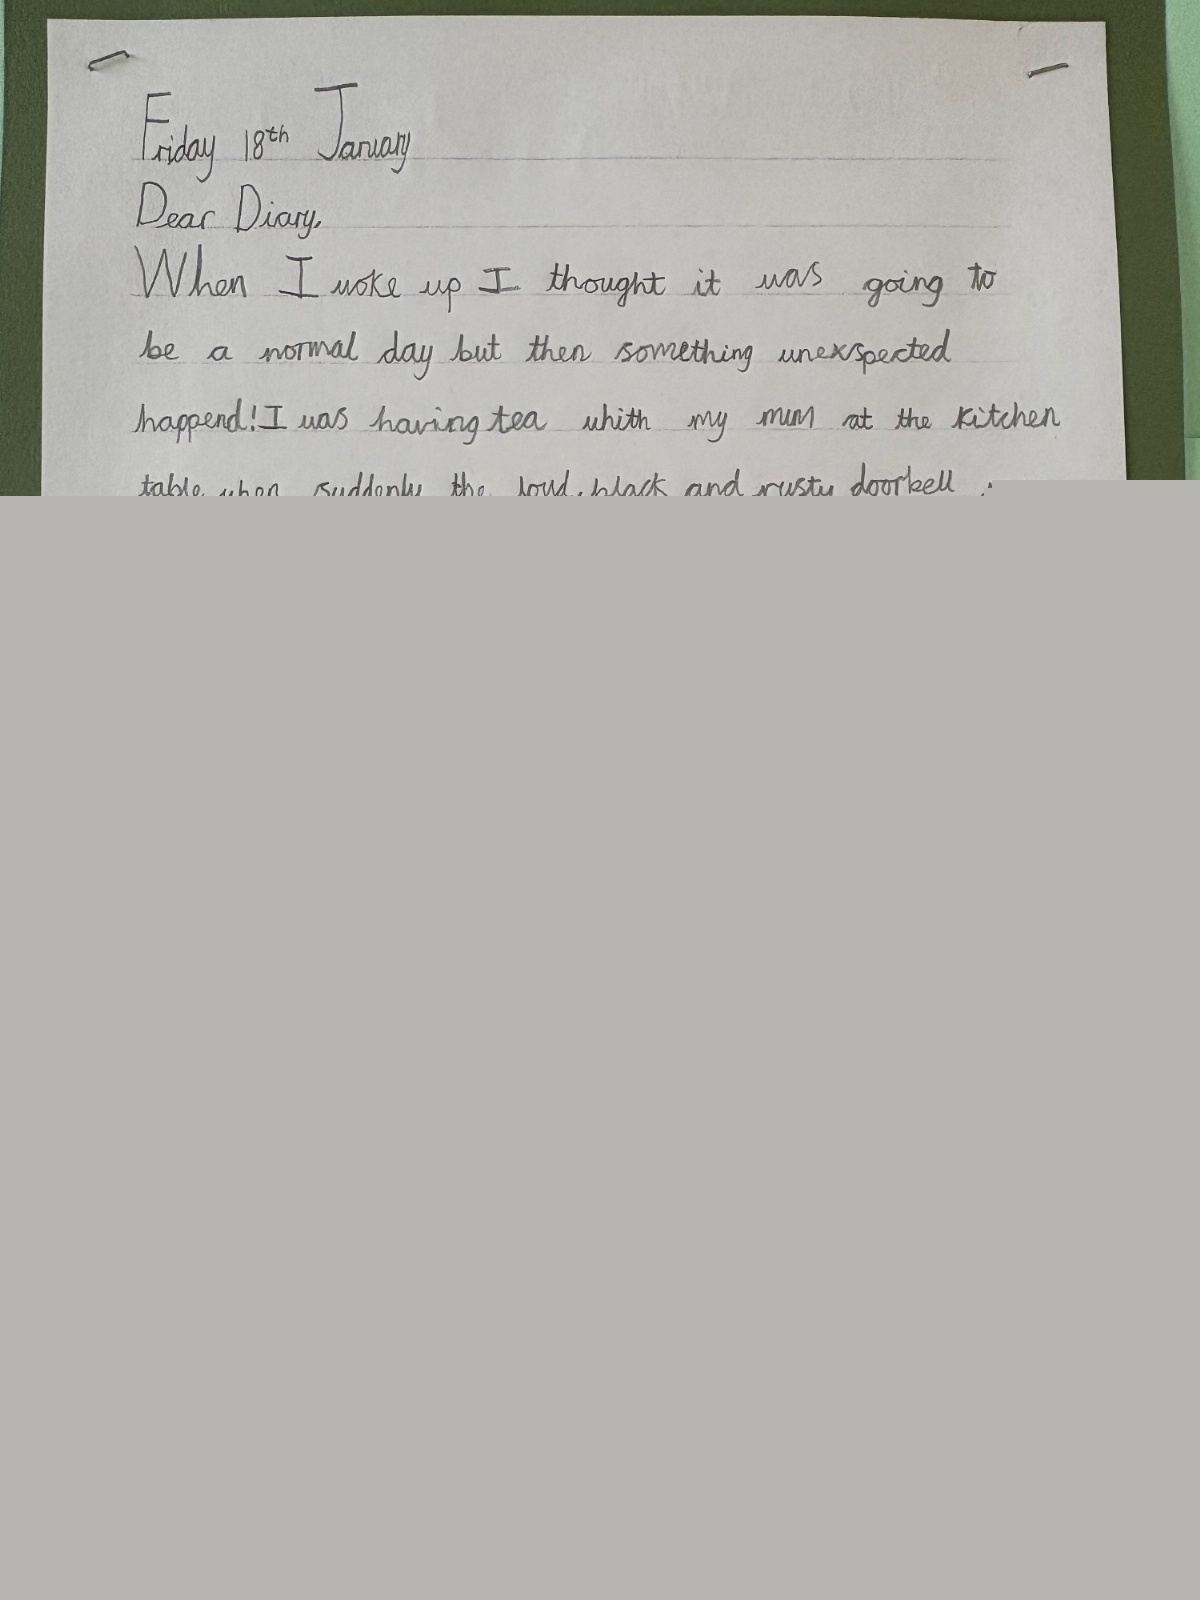 Friday 18th January
Dear Diary,
When I woke up I thought it was going to
be a normal day but then something unexspected
happend! I was having tea whith my mum at the kitchen
table when suddenly the loud, black and rusty doorbell